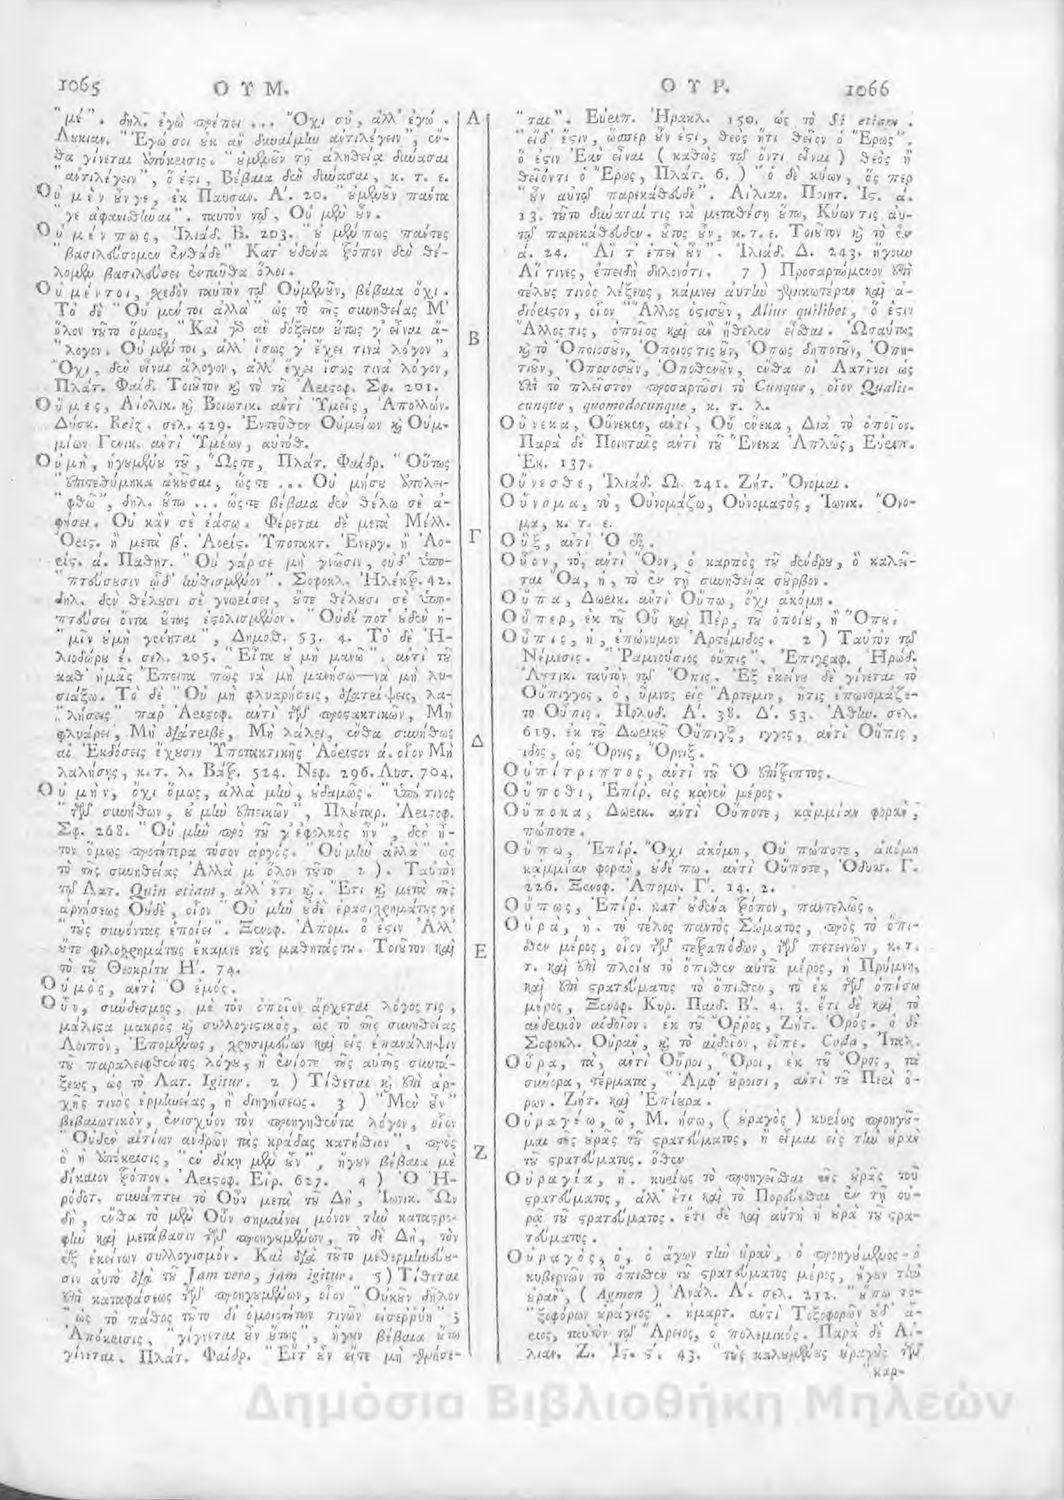 1065 ΟΥΜ.
"μέ". δηλ. ἐγὼ πρέπει ... "Ὄχι σύ, ἀλλ' ἐγώ.
Λυκιαν. "Ἐγώ σοι οὐκ ἂν δυναίμην ἀντιλέγειν", ἔν-
θα γίνεται ἀπόκεισις. "οὐμενοῦν τῇ ἀληθείᾳ δύνασαι
"ἀντιλέγειν", ὅ ἐστι, Βέβαια δὲν δύνασαι, κ. τ. ε.
Οὐ μὲν οὖν γε, ἐκ Παυσαν. Α'. 20. "οὐμενοῦν πάντα
"γε ἀφανισθῆναι". ταυτὸν τῷ, Οὐ μὲν οὖν.
Οὐ μέν πως, Ἰλιάδ. Β. 203. "οὐ μέν πως πάντες
"βασιλεύσομεν ἐνθάδε" Κατ' οὐδένα τρόπον δὲν θέ-
λομεν βασιλεύσει ἐνταῦθα ὅλοι.
Οὐ μέντοι, σχεδὸν ταυτὸν τῷ Οὐμενοῦν, βέβαια ὄχι.
Τὸ δὲ "Οὐ μέν τοι ἀλλὰ" ὡς τὸ τῆς συνηθείας Μ'
ὅλον τοῦτο ὅμως, "Καὶ γὰρ ἂν δόξειεν οὕτως γ' εἶναι ἄ-
"λογον. Οὐ μέν τοι, ἀλλ' ἴσως γ' ἔχει τινὰ λόγον",
Ὄχι, δὲν εἶναι ἄλογον, ἀλλ' ἔχει ἴσως τινὰ λόγον,
Πλάτ. Φαίδ. Τοιοῦτον καὶ τὸ τοῦ Ἀριστοφ. Σφ. 201.
Οὖμες, Αἰολικ. καὶ Βοιωτικ. ἀντὶ Ὑμεῖς, Ἀπολλών.
Δύσκ. Reiz. σελ. 429. Ἐντεῦθεν Οὐμείων καὶ Οὐμ-
μίων Γενικ. ἀντὶ Ὑμέων, αὐτόθ.
Οὐμὴ, ἡγουμένου τοῦ, Ὥςτε, Πλάτ. Φαίδρ. "Οὕτως
"ἐπιτεθύμηκα ἀκοῦσαι, ὥςτε ... Οὐ μήσου ἀπολει-
"φθῶ", δηλ. οὕτω ... ὥςτε βέβαια δὲν θέλω σὲ ἀ-
φήσει. Οὐ κἂν σὲ ἐάσω. Φέρεται δὲ μετὰ Μέλλ.
Ὁρις. ἢ μετὰ β'. Ἀορίς. Ὑποτακτ. Ἐνεργ. ἢ Ἀο-
ρίς. ά. Παθητ. "Οὐ γάρ σε μὴ γνῶσιν, οὐδ' ὑπο-
"πτεύσουσιν ὧδ' ἠνθισμένον". Σοφοκλ. Ἠλέκτρ. 42.
δηλ. δὲν θέλουσι σὲ γνωρίσει, οὔτε θέλουσι σὲ ὑπο-
πτεύσει ὄντα οὕτως ἐστολισμένον. "Οὐδέ ποτ' οὐδὲν ἡ-
"μῖν οὐμὴ γένηται", Δημοσθ. 53. 4. Τὸ δὲ Ἡ-
λιοδώρου έ. σελ. 205. "Εἶτα οὐ μὴ μανῶ". ἀντὶ τοῦ
καθ' ἡμᾶς Ἔπειτα πῶς νὰ μὴ μανήσω—νὰ μὴ λυ-
σιάξω. Τὸ δὲ "Οὐ μὴ φλυαρήσεις, διατρίψεις, λα-
"λήσεις" παρ' Ἀριστοφ. ἀντὶ τῶν προςακτικῶν, Μὴ
φλυάρει, Μὴ διάτριβε, Μὴ λάλει, ἔνθα συνήθως
αἱ Ἐκδόσεις ἔχουσιν Ὑποτακτικῆς Ἀόριστον ά. οἷον Μὴ
λαλήσῃς, κ. τ. λ. Βάτρ. 524. Νεφ. 296. Λυσ. 704.
Οὐ μὴν, ὄχι ὅμως, ἀλλὰ μὴν, οὐδαμῶς. "ὑπό τινος
"τῶν συνήθων, οὐ μὴν ἐπιεικῶν", Πλούταρ. Ἀριστοφ.
Σφ. 268. "Οὐ μὴν πρὸ τοῦ γ' ἐφολκὸς ἦν", δὲν ἦ-
τον ὅμως προτήτερα τόσον ἀργός. "Οὐ μὴν ἀλλὰ" ὡς
τὸ τῆς συνηθείας Ἀλλὰ μ' ὅλον τοῦτο 2 ). Ταὐτὸν
τῷ Λατ. Quin etiam, ἀλλ' ἔτι καὶ. Ἔτι καὶ μετὰ τῆς
ἀρνήσεως Οὐδὲ, οἷον "Οὐ μὴν οὐδὲ ἐρασιχρημάτους γε
"τοὺς συνόντας ἐποίει". Ξενοφ. Ἀπομ. ὅ ἐστιν Ἀλλ'
οὔτε φιλοχρημάτους ἔκαμνε τοὺς μαθητάςτου. Τοιοῦτον καὶ
τὸ τοῦ Θεοκρίτου Η'. 74.
Οὐμὸς, ἀντὶ Ὁ ἐμός.
Οὖν, σύνδεσμος, μὲ τὸν ὁποῖον ἄρχεται λόγος τις,
μάλιστα μακρὸς καὶ συλλογιστικὸς, ὡς τὸ τῆς συνηθείας
Λοιπὸν, Ἑπομένως, χρησιμεύων καὶ εἰς ἐπανάληψιν
τοῦ παραλειφθέντος λόγου, ἢ ἐνίοτε τῆς αὐτῆς συντά-
ξεως, ὡς τὸ Λατ. Igitur. 2 ) Τίθεται καὶ ἐπὶ ἀρ-
χῆς τινὸς ἑρμηνείας, ἢ διηγήσεως. 3 ) "Μὲν οὖν"
βεβαιωτικὸν, ἐνισχύον τὸν προηγηθέντα λόγον, οἷον
"Οὐδὲν αἰτίων ἀνδρῶν τὰς κράδας κατήσθιον", πρὸς
ὃ ἡ ἀπόκεισις, "ἐν δίκῃ μὲν οὖν", ἤγουν βέβαια μὲ
δίκαιον τρόπον. Ἀριστοφ. Εἰρ. 627. 4 ) Ὁ Ἡ-
ρόδοτ. συνάπτει τὸ Οὖν μετὰ τοῦ Δὴ, Ἰωνικ. Ὦν
δὴ, ἔνθα τὸ μὲν Οὖν σημαίνει μόνον τὴν καταστρο-
φὴν καὶ μετάβασιν τῶν προηγουμένων, τὸ δὲ Δὴ, τὸν
ἐξ ἐκείνων συλλογισμόν. Καὶ διὰ τοῦτο μεθερμηνεύου-
σιν αὐτὸ διὰ τοῦ Jam vero, jam igitur. 5 ) Τίθεται
ἐπὶ καταφάσεως τῶν προηγουμένων, οἷον "Οὐκοῦν δῆλον
"ὡς τὸ πάθος τοῦτο δι' ὁμοιοτήτων τινῶν εἰσερρύη";
Ἀπόκεισις, "γίγνεται οὖν οὕτως", ἤγουν βέβαια οὕτω
γίνεται. Πλάτ. Φαίδρ. "Εἴτ' οὖν εἴτε μὴ θρήσε-
Α
Β
Γ
Δ
Ε
Ζ
ΟΥΡ. 1066
"ται". Εὐριπ. Ἡρακλ. 150. ὡς τὸ Si etiam.
"εἰ δ' ἔστιν, ὥσπερ οὖν ἔστι, θεὸς ἤτι θεῖον ὁ Ἔρως".
ὅ ἐστιν Ἐὰν εἶναι ( καθὼς τῷ ὄντι εἶναι ) θεὸς ἢ
θεῖόντι ὁ Ἔρως, Πλάτ. 6. ) "ὁ δὲ κύων, ὅς περ
"οὖν αὐτῷ παρεκάθευδε". Αἰλιαν. Ποιητ. Ἱς. ά.
13. τοῦτο δύναταί τις νὰ μεταθέσῃ οὕτω, Κύων τις αὐ-
τῷ παρεκάθευδεν. οὗτος οὖν, κ. τ. ε. Τοιοῦτον καὶ τὸ ἐν
ά. 24. "Αἵ τ' ἐπεὶ οὖν". Ἰλιάδ. Δ. 243. ἤγουν
Αἵ τινες, ἐπειδὴ δηλονότι. 7 ) Προσαρτώμενον ἐπὶ
τέλους τινὸς λέξεως, κάμνει αὐτὴν γενικωτέραν καὶ ἀ-
διόριστον, οἷον "Ἄλλος ὁστισοῦν, Alius quilibet, ὅ ἐστιν
Ἄλλος τις, ὁποῖος καὶ ἂν ἤθελεν εἶσθαι. Ὡσαύτως
καὶ τὸ Ὁποιοσοῦν, Ὁποιος τις οὖν, Ὅπως δηποτοῦν, Ὁπη-
τιοῦν, Ὁποσοσοῦν, Ὁποθενοῦν, ἔνθα οἱ Λατῖνοι ὡς
ἐπὶ τὸ πλεῖστον προσαρτῶσι τὸ Cunque, οἷον Qualis-
cunque, quomodocunque, κ. τ. λ.
Οὕνεκα, Οὕνεκεν, ἀντὶ, Οὗ ἕνεκα, Διὰ τὸ ὁποῖον.
Παρὰ δὲ Ποιηταῖς ἀντὶ τοῦ Ἕνεκα Ἁπλῶς, Εὐριπ.
Ἑκ. 137.
Οὔνεσθε, Ἰλιάδ. Ω. 241. Ζήτ. Ὄνομαι.
Οὔνομα, τὸ, Οὐνομάζω, Οὐνομαστὸς, Ἰωνικ. Ὄνο-
μα, κ. τ. ε.
Οὓξ, ἀντὶ Ὁ ἐξ.
Οὖον, τὸ, ἀντὶ Ὄον, ὁ καρπὸς τοῦ δένδρου, ὃ καλεῖ-
ται Ὄα, ἡ, τὸ ἐν τῇ συνηθείᾳ σοῦρβον.
Οὔπα, Δωρικ. ἀντὶ Οὔπω, ὄχι ἀκόμη.
Οὗπερ, ἐκ τοῦ Οὗ καὶ Πὲρ, τοῦ ὁποίου, ἢ Ὅπου.
Οὖπις, ἡ, ἐπώνυμον Ἀρτέμιδος. 2 ) Ταὐτὸν τῷ
Νέμεσις. "Ῥαμνούσιος οὖπις". Ἐπιγραφ. Ἡρώδ.
Ἀττικ. ταὐτὸν τῷ Ὄπις. Ἐξ ἐκείνου δὲ γίνεται τὸ
Οὔπιγγος, ὁ, ὕμνος εἰς Ἄρτεμιν, ἥτις ἐπωνομάζε-
το Οὖπις. Πολυδ. Α'. 38. Δ'. 53. Ἀθην. σελ.
619. ἐκ τοῦ Δωρικοῦ Οὔπιγξ, ιγγος, ἀντὶ Οὖπις,
ιδος, ὡς Ὄρνις, Ὄρνιξ.
Οὐπίτριπτος, ἀντὶ τοῦ Ὁ ἐπίτριπτος.
Οὔποθι, Ἐπίρ. εἰς κᾀνὲν μέρος.
Οὔποκα, Δωρικ. ἀντὶ Οὔποτε, κᾀμμίαν φορὰν,
πώποτε.
Οὔπω, Ἐπίρ. Ὄχι ἀκόμη, Οὐ πώποτε, ἀκόμη
κᾀμμίαν φορὰν, οὐδέ πω. ἀντὶ Οὔποτε, Ὀδυσσ. Γ.
226. Ξενοφ. Ἀπομν. Γ'. 14. 2.
Οὔπως, Ἐπίρ. κατ' οὐδένα τρόπον, παντελῶς.
Οὐρὰ, ἡ. τὸ τέλος παντὸς Σώματος, πρὸς τὸ ὄπι-
σθεν μέρος, οἷον τῶν τετραπόδων, τῶν πετεινῶν, κ. τ.
τ. καὶ ἐπὶ πλοίου τὸ ὄπισθεν αὐτοῦ μέρος, ἡ Πρύμνη,
καὶ ἐπὶ στρατεύματος τὸ ὄπισθεν, τὸ ἐκ τῶν ὀπίσω
μέρος, Ξενοφ. Κυρ. Παιδ. Β'. 4. 3. ἔτι δὲ καὶ τὸ
ἀνδρικὸν αἰδοῖον. ἐκ τοῦ Ὄρρος, Ζήτ. Ὀρός. ὁ δὲ
Σοφοκλ. Οὐρὰν, καὶ τὸ αἰδοῖον, εἶπε. Coda, Ἰταλ.
Οὖρα, τὰ, ἀντὶ Οὖροι, Ὅροι, ἐκ τοῦ Ὅρος, τὰ
σύνορα, τέρματα, "Ἀμφ' οὔροισι, ἀντὶ τοῦ Περὶ ὅ-
ρων. Ζήτ. καὶ Ἐπίουρα.
Οὐραγέω, ῶ, Μ. ήσω, ( οὐραγὸς ) κυρίως προηγοῦ-
μαι τῆς οὐρᾶς τοῦ στρατεύματος, ἢ εἶμαι εἰς τὴν οὐρὰν
τοῦ στρατεύματος. ὅθεν
Οὐραγία, ἡ. κυρίως τὸ προηγεῖσθαι τῆς οὐρᾶς τοῦ
στρατεύματος, ἀλλ' ἔτι καὶ τὸ Πορεύεσθαι ἐν τῇ οὐ-
ρᾷ τοῦ στρατεύματος. ἔτι δὲ καὶ αὐτὴ ἡ οὐρὰ τοῦ στρα-
τεύματος.
Οὐραγὸς, ὁ, ὁ ἄγων τὴν οὐρὰν, ὁ προηγούμενος ὁ
κυβερνῶν τὸ ὄπισθεν τοῦ στρατεύματος μέρος, ἤγουν τὴν
οὐρὰν, ( Agmen ) Ἀνάλ. Α'. σελ. 212. "οὔπω το-
"ξοφόρων οὐράγιος". ἡμαρτ. ἀντὶ Τοξοφόρων οὐδ' ἄ-
ριος, ταὐτὸν τῷ Ἄρειος, ὁ πολεμικός. Παρὰ δὲ Αἰ-
λιαν. Ζ. Ἱς. ς'. 43. "τοὺς καλουμένους οὐραγοὺς τῶν
"καρ-
Δημόσια Βιβλιοθήκη Μηλεών